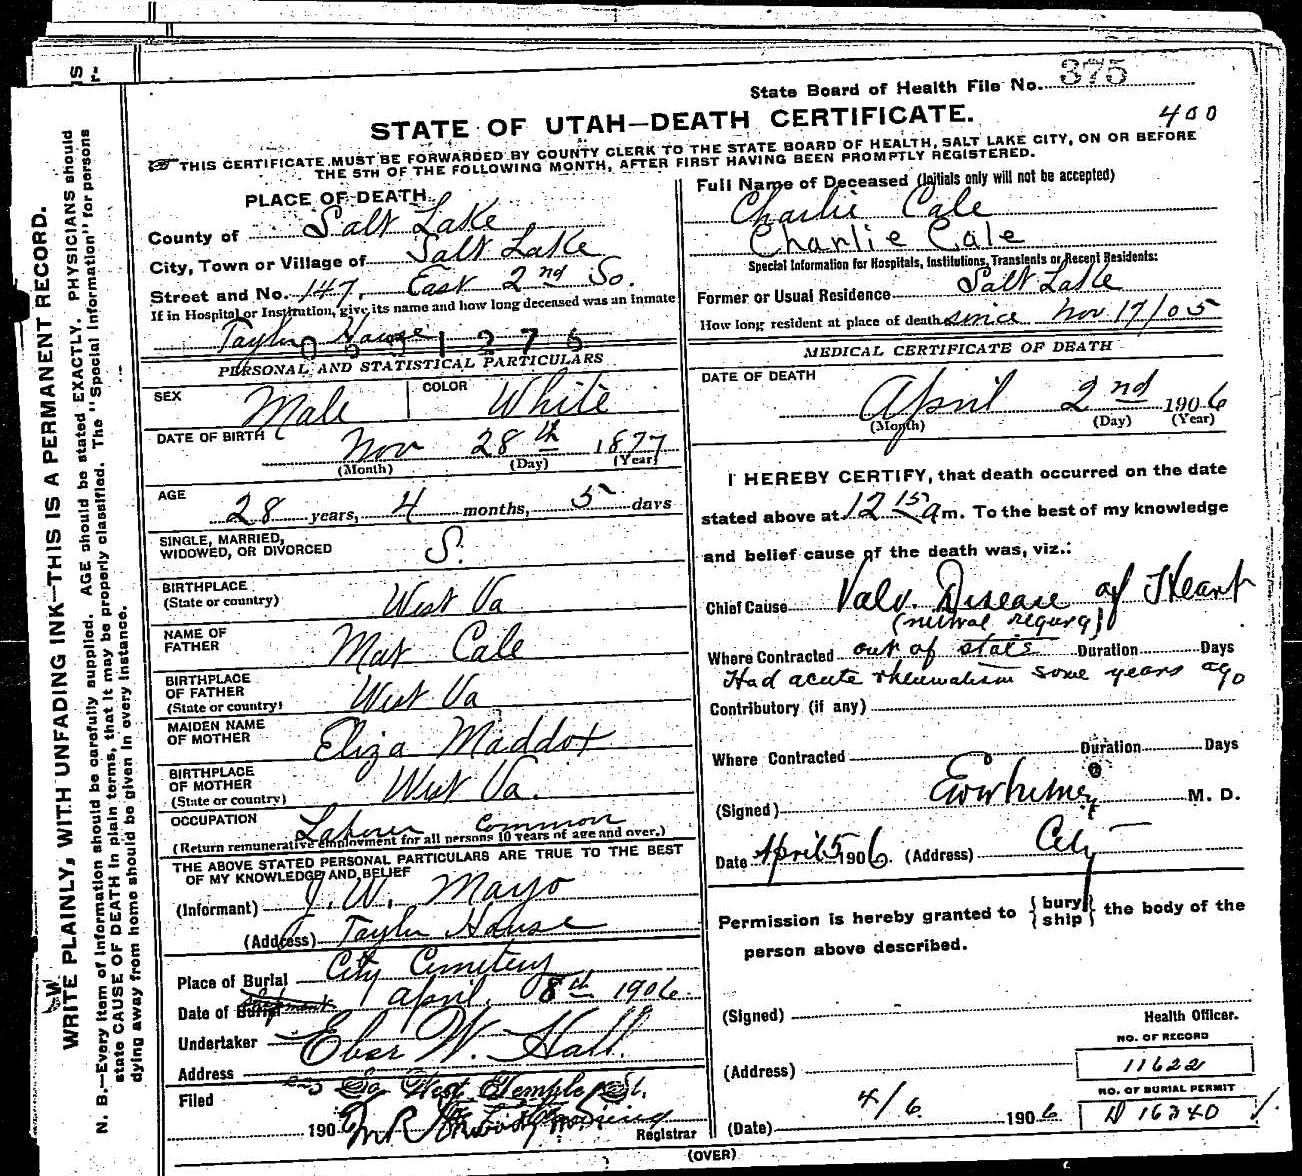 State Board of Health File No. 375
STATE OF UTAH—DEATH CERTIFICATE.
400
THIS CERTIFICATE MUST BE FORWARDED BY COUNTY CLERK TO THE STATE BOARD OF HEALTH, SALT LAKE CITY, ON OR BEFORE
THE 5TH OF THE FOLLOWING MONTH, AFTER FIRST HAVING BEEN PROMPTLY REGISTERED.
WRITE PLAINLY, WITH UNFADING INK—THIS IS A PERMANENT RECORD.
N. B.—Every item of information should be carefully supplied. AGE should be stated EXACTLY. PHYSICIANS should
state CAUSE OF DEATH in plain terms, that it may be properly classified. The "Special Information" for persons
dying away from home should be given in every instance.
PLACE OF DEATH.
County of Salt Lake
City, Town or Village of Salt Lake
Street and No. 147 East 2nd So.
If in Hospital or Institution, give its name and how long deceased was an inmate
Taylor House
PERSONAL AND STATISTICAL PARTICULARS
SEX Male
COLOR White
DATE OF BIRTH Nov 28th 1877
(Month) (Day) (Year)
AGE 28 years, 4 months, 5 days
SINGLE, MARRIED,
WIDOWED, OR DIVORCED S.
BIRTHPLACE
(State or country) West Va
NAME OF
FATHER Mat Cale
BIRTHPLACE
OF FATHER
(State or country) West Va
MAIDEN NAME
OF MOTHER Eliza Maddox
BIRTHPLACE
OF MOTHER
(State or country) West Va.
OCCUPATION Laborer Common
(Return remunerative employment for all persons 10 years of age and over.)
THE ABOVE STATED PERSONAL PARTICULARS ARE TRUE TO THE BEST
OF MY KNOWLEDGE AND BELIEF
(Informant) J. W. Mayo
(Address) Taylor House
Place of Burial City Cemetery
Date of Burial April 8th 1906
Undertaker Eber W. Hall.
Address So West Temple St.
Filed
1906 Registrar
Full Name of Deceased (Initials only will not be accepted)
Charlie Cale
Charlie Cale
Special Information for Hospitals, Institutions, Transients or Recent Residents:
Former or Usual Residence Salt Lake
How long resident at place of death since Nov 17/05
MEDICAL CERTIFICATE OF DEATH
DATE OF DEATH
April 2nd 1906
(Month) (Day) (Year)
I HEREBY CERTIFY, that death occurred on the date
stated above at 12 15 a m. To the best of my knowledge
and belief cause of the death was, viz.:
Chief Cause Valv. Disease of Heart
(mitral regurg)
Where Contracted out of state Duration Days
Had acute rheumatism some years ago
Contributory (if any)
Where Contracted Duration Days
(Signed) M. D.
Date April 5 1906. (Address) City
Permission is hereby granted to { bury ship } the body of the
person above described.
(Signed)
Health Officer.
(Address)
NO. OF RECORD
11622
NO. OF BURIAL PERMIT
D 16340
(Date) 4/6 1906
(OVER)